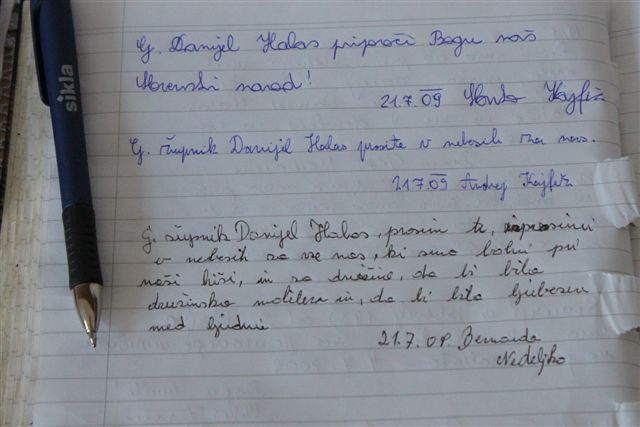 sikla
G. Danijel Halas priproči Bogu naš
slovenski narod!
21.7.09 Kajfež
G. župnik Danijel Halas prosite v nebesih za nas.
21.7.09 Andrej Kajfež
G. župnik Danijel Halas, prosim te, izprosi
v nebesih za vse nas, ki smo bolni pri
naši hiši, in za družine, da bi bila
družinska molitev in, da bi bila ljubezen
med ljudmi
21.7.09. Bernarda
Nedeljko